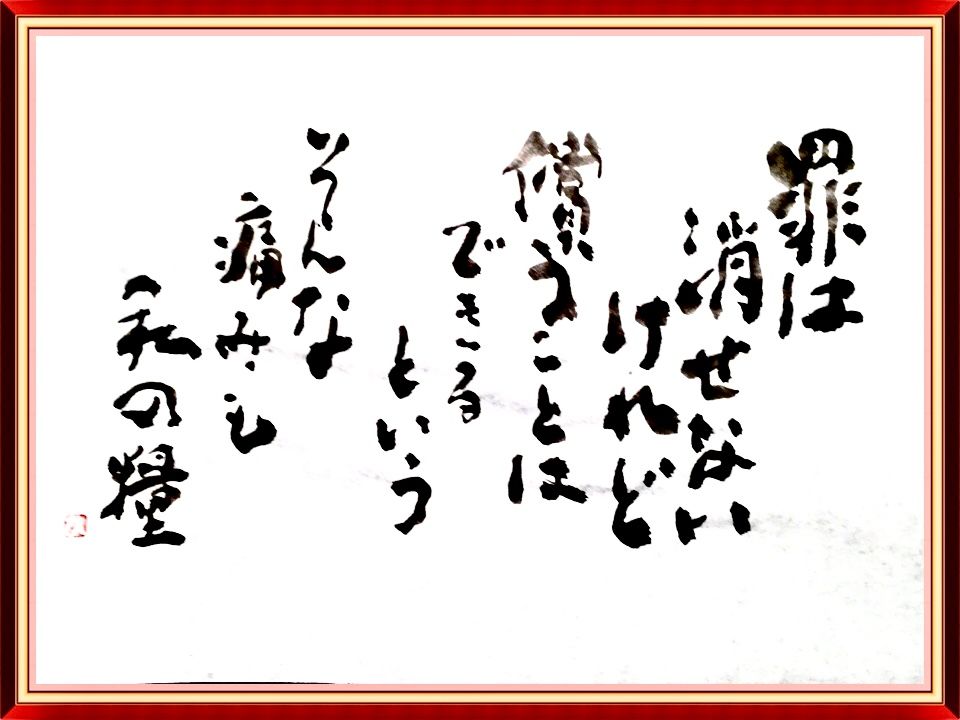 罪は
消せない
けれど
償うことは
できる
という
そんな
痛みも
私の糧